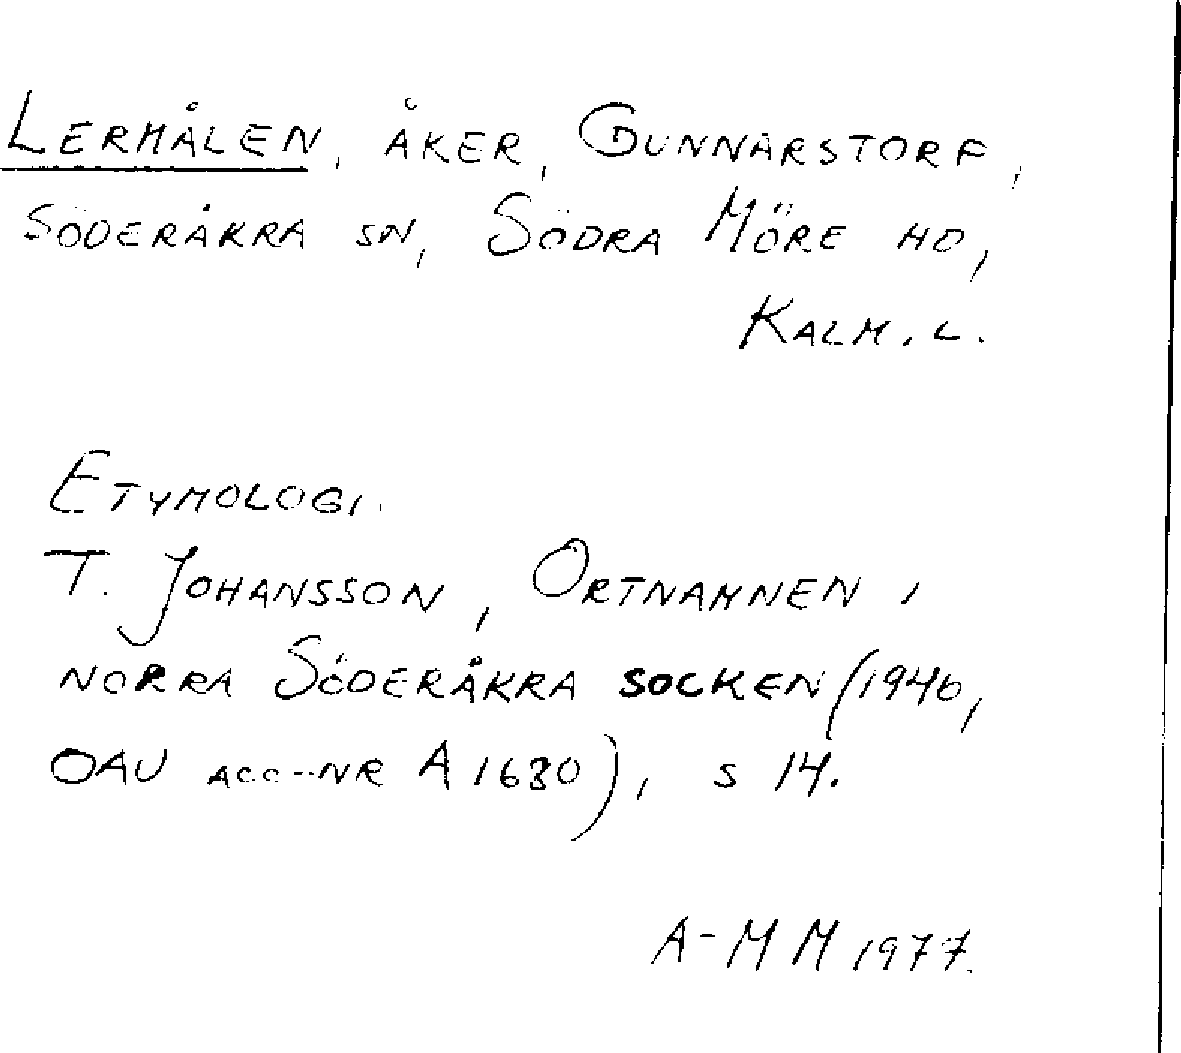 LERMÅLEN, ÅKER, GUNNARSTORP,
SÖDERÅKRA SN, SÖDRA MÖRE HD,
KALM. L.
ETYMOLOGI.
T. JOHANSSON, ORTNAMNEN I
NORRA SÖDERÅKRA SOCKEN (1946,
OAU ACC-NR A 1680), S 14.
A-M M 1977.